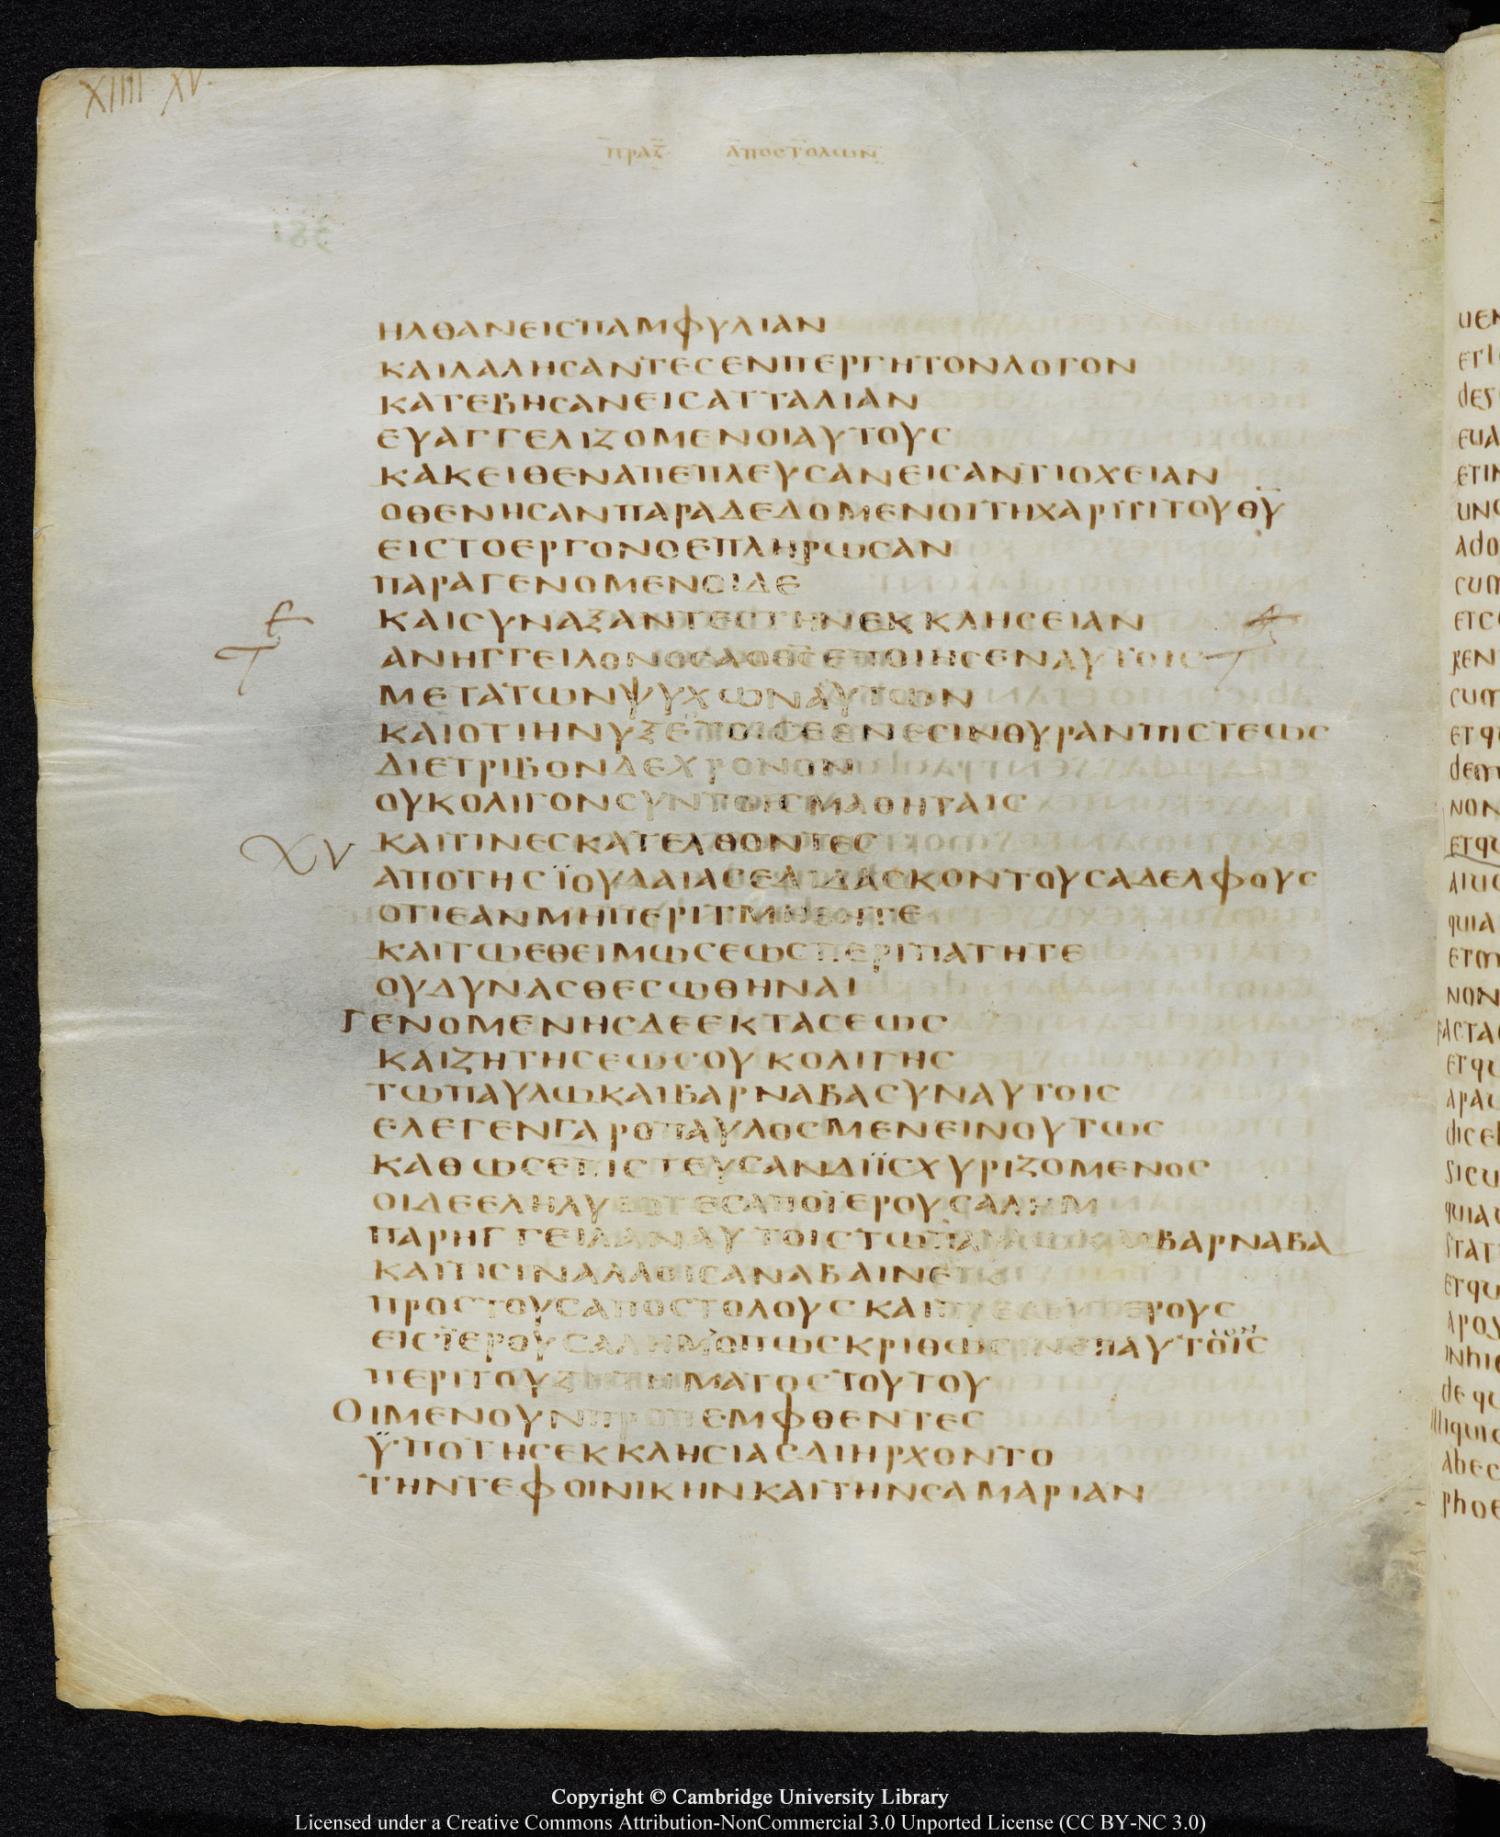 XIIII XV
ΠΡΑΞ ΑΠΟСΤΟΛΩΝ
ΗΛΘΑΝΕΙСΠΑΜΦΥΛΙΑΝ
ΚΑΙΛΑΛΗСΑΝΤΕСΕΝΠΕΡΓΗΤΟΝΛΟΓΟΝ
ΚΑΤΕΒΗСΑΝΕΙСΑΤΤΑΛΙΑΝ
ΕΥΑΓΓΕΛΙΖΟΜΕΝΟΙΑΥΤΟΥС
ΚΑΚΕΙΘΕΝΑΠΕΠΛΕΥСΑΝΕΙСΑΝΤΙΟΧΕΙΑΝ
ΟΘΕΝΗСΑΝΠΑΡΑΔΕΔΟΜΕΝΟΙΤΗΧΑΡΙΤΙΤΟΥΘΥ
ΕΙСΤΟΕΡΓΟΝΟΕΠΛΗΡΩСΑΝ
ΠΑΡΑΓΕΝΟΜΕΝΟΙΔΕ
ΚΑΙСΥΝΑΞΑΝΤΕСΤΗΝΕΚΚΛΗСΕΙΑΝ
ΑΝΗΓΓΕΙΛΟΝΟСΑΟΘСΕΠΟΙΗСΕΝΑΥΤΟΙС
ΜΕΤΑΤΩΝΨΥΧΩΝΑΥΤΩΝ
ΚΑΙΟΤΙΗΝΥΞΕΤΟΙСΕΘΝΕСΙΝΘΥΡΑΝΠΙСΤΕΩС
ΔΙΕΤΡΙΒΟΝΔΕΧΡΟΝΟΝ
ΟΥΚΟΛΙΓΟΝСΥΝΤΟΙСΜΑΘΗΤΑΙС
XV ΚΑΙΤΙΝΕСΚΑΤΕΛΘΟΝΤΕС
ΑΠΟΤΗСΪΟΥΔΑΙΑСΕΔΙΔΑСΚΟΝΤΟΥСΑΔΕΛΦΟΥС
ΟΤΙΕΑΝΜΗΠΕΡΙΤΜΗΘΗΤΕ
ΚΑΙΤΩΕΘΕΙΜΩСΕΩСΠΕΡΙΠΑΤΗΤΕ
ΟΥΔΥΝΑСΘΕСΩΘΗΝΑΙ
ΓΕΝΟΜΕΝΗСΔΕΕΚΤΑСΕΩС
ΚΑΙΖΗΤΗСΕΩСΟΥΚΟΛΙΓΗС
ΤΩΠΑΥΛΩΚΑΙΒΑΡΝΑΒΑСΥΝΑΥΤΟΙС
ΕΛΕΓΕΝΓΑΡΟΠΑΥΛΟСΜΕΝΕΙΝΟΥΤΩС
ΚΑΘΩСΕΠΙСΤΕΥСΑΝΔΙΪСΧΥΡΙΖΟΜΕΝΟС
ΟΙΔΕΕΛΗΛΥΘΟΤΕСΑΠΟΪΕΡΟΥСΑΛΗΜ
ΠΑΡΗΓΓΕΙΛΑΝΑΥΤΟΙСΤΩΠΑΥΛΩΚΑΙΒΑΡΝΑΒΑ
ΚΑΙΤΙСΙΝΑΛΛΟΙСΑΝΑΒΑΙΝΕΙΝ
ΠΡΟСΤΟΥСΑΠΟСΤΟΛΟΥСΚΑΙΠΡΕСΒΥΤΕΡΟΥС
ΕΙСΪΕΡΟΥСΑΛΗΜΟΠΩСΚΡΙΘΩСΙΝΕΠΑΥΤΟΙС
ΠΕΡΙΤΟΥΖΗΤΗΜΑΤΟСΤΟΥΤΟΥ
ΟΙΜΕΝΟΥΝΠΡΟΠΕΜΦΘΕΝΤΕС
ΫΠΟΤΗСΕΚΚΛΗСΙΑСΔΙΗΡΧΟΝΤΟ
ΤΗΝΤΕΦΟΙΝΙΚΗΝΚΑΙΤΗΝСΑΜΑΡΙΑΝ
Copyright © Cambridge University Library
Licensed under a Creative Commons Attribution-NonCommercial 3.0 Unported License (CC BY-NC 3.0)